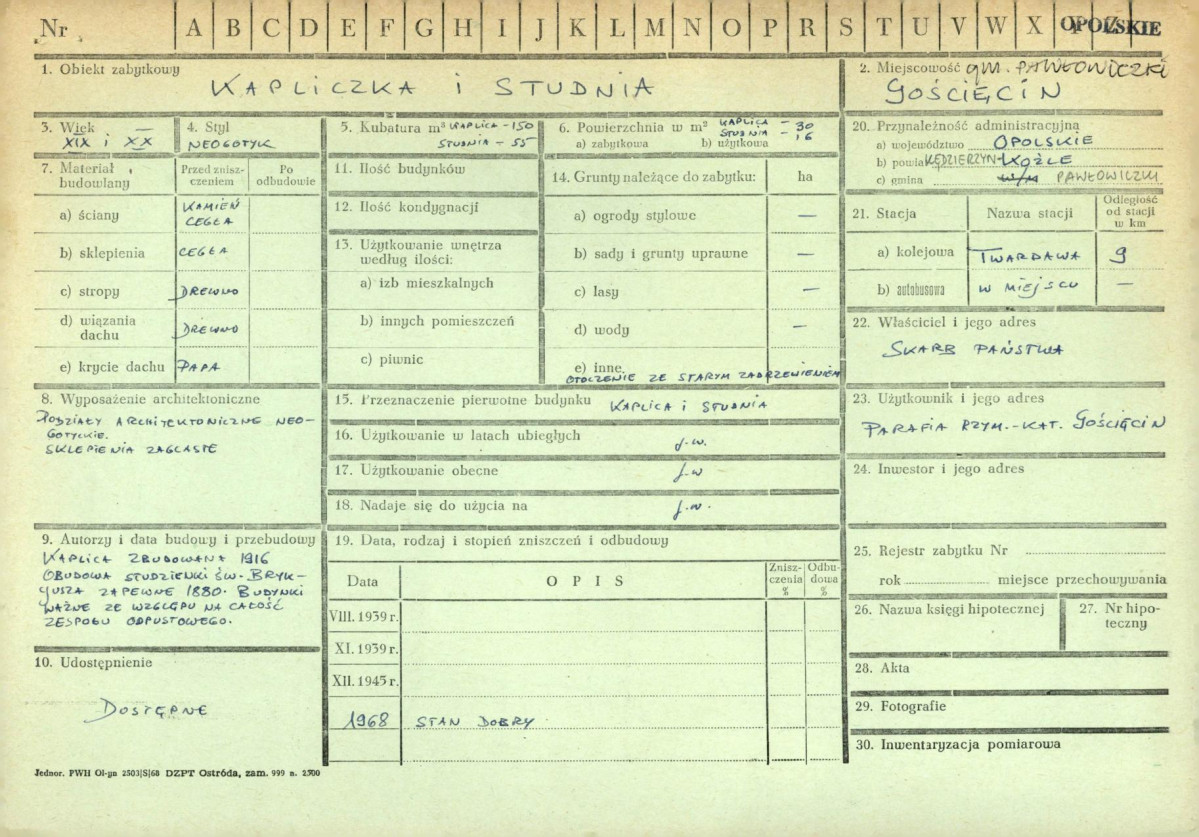 Nr A B C D E F G H I J K L M N O P R S T U V W X OPOLSKIE
1. Obiekt zabytkowy
KAPLICZKA i STUDNIA
2. Miejscowość gm. PAWŁOWICZKI
GOŚCIĘCIN
3. Wiek
XIX i XX
4. Styl
NEOGOTYK
5. Kubatura m³ KAPLICA - 150
STUDNIA - 55
6. Powierzchnia w m² KAPLICA - 30
STUDNIA - 16
a) zabytkowa b) użytkowa
20. Przynależność administracyjna
a) województwo OPOLSKIE
b) powiat KĘDZIERZYN-KOŹLE
c) gmina w/m PAWŁOWICZKI
7. Materiał budowlany
Przed znisz-
czeniem
Po
odbudowie
a) ściany KAMIEŃ
CEGŁA
b) sklepienia CEGŁA
c) stropy DREWNO
d) wiązania
dachu DREWNO
e) krycie dachu PAPA
11. Ilość budynków
12. Ilość kondygnacji
13. Użytkowanie wnętrza
według ilości:
a) izb mieszkalnych
b) innych pomieszczeń
c) piwnic
14. Grunty należące do zabytku: ha
a) ogrody stylowe —
b) sady i grunty uprawne —
c) lasy —
d) wody —
e) inne
OTOCZENIE ZE STARYM ZADRZEWIENIEM
21. Stacja Nazwa stacji Odległość
od stacji
w km
a) kolejowa TWARDAWA 9
b) autobusowa W MIEJSCU —
22. Właściciel i jego adres
SKARB PAŃSTWA
8. Wyposażenie architektoniczne
PODZIAŁY ARCHITEKTONICZNE NEO-
GOTYCKIE.
SKLEPIENIA ŻAGLASTE
15. Przeznaczenie pierwotne budynku KAPLICA i STUDNIA
16. Użytkowanie w latach ubiegłych j.w.
17. Użytkowanie obecne j.w
18. Nadaje się do użycia na j.w.
23. Użytkownik i jego adres
PARAFIA RZYM.-KAT. GOŚCIĘCIN
24. Inwestor i jego adres
9. Autorzy i data budowy i przebudowy
KAPLICA ZBUDOWANA 1916
OBUDOWA STUDZIENKI ŚW. BRYK-
CJUSZA ZAPEWNE 1880. BUDYNKI
WAŻNE ZE WZGLĘDU NA CAŁOŚĆ
ZESPOŁU ODPUSTOWEGO.
10. Udostępnienie
DOSTĘPNE
19. Data, rodzaj i stopień zniszczeń i odbudowy
Data OPIS Znisz-
czenia
% Odbu-
dowa
%
VIII. 1939 r.
XI. 1939 r.
XII. 1945 r.
1968 STAN DOBRY
25. Rejestr zabytku Nr
rok miejsce przechowywania
26. Nazwa księgi hipotecznej
27. Nr hipo-
teczny
28. Akta
29. Fotografie
30. Inwentaryzacja pomiarowa
Jednor. PWH Ol-yn 2503|S|68 DZPT Ostróda, zam. 999 n. 2500